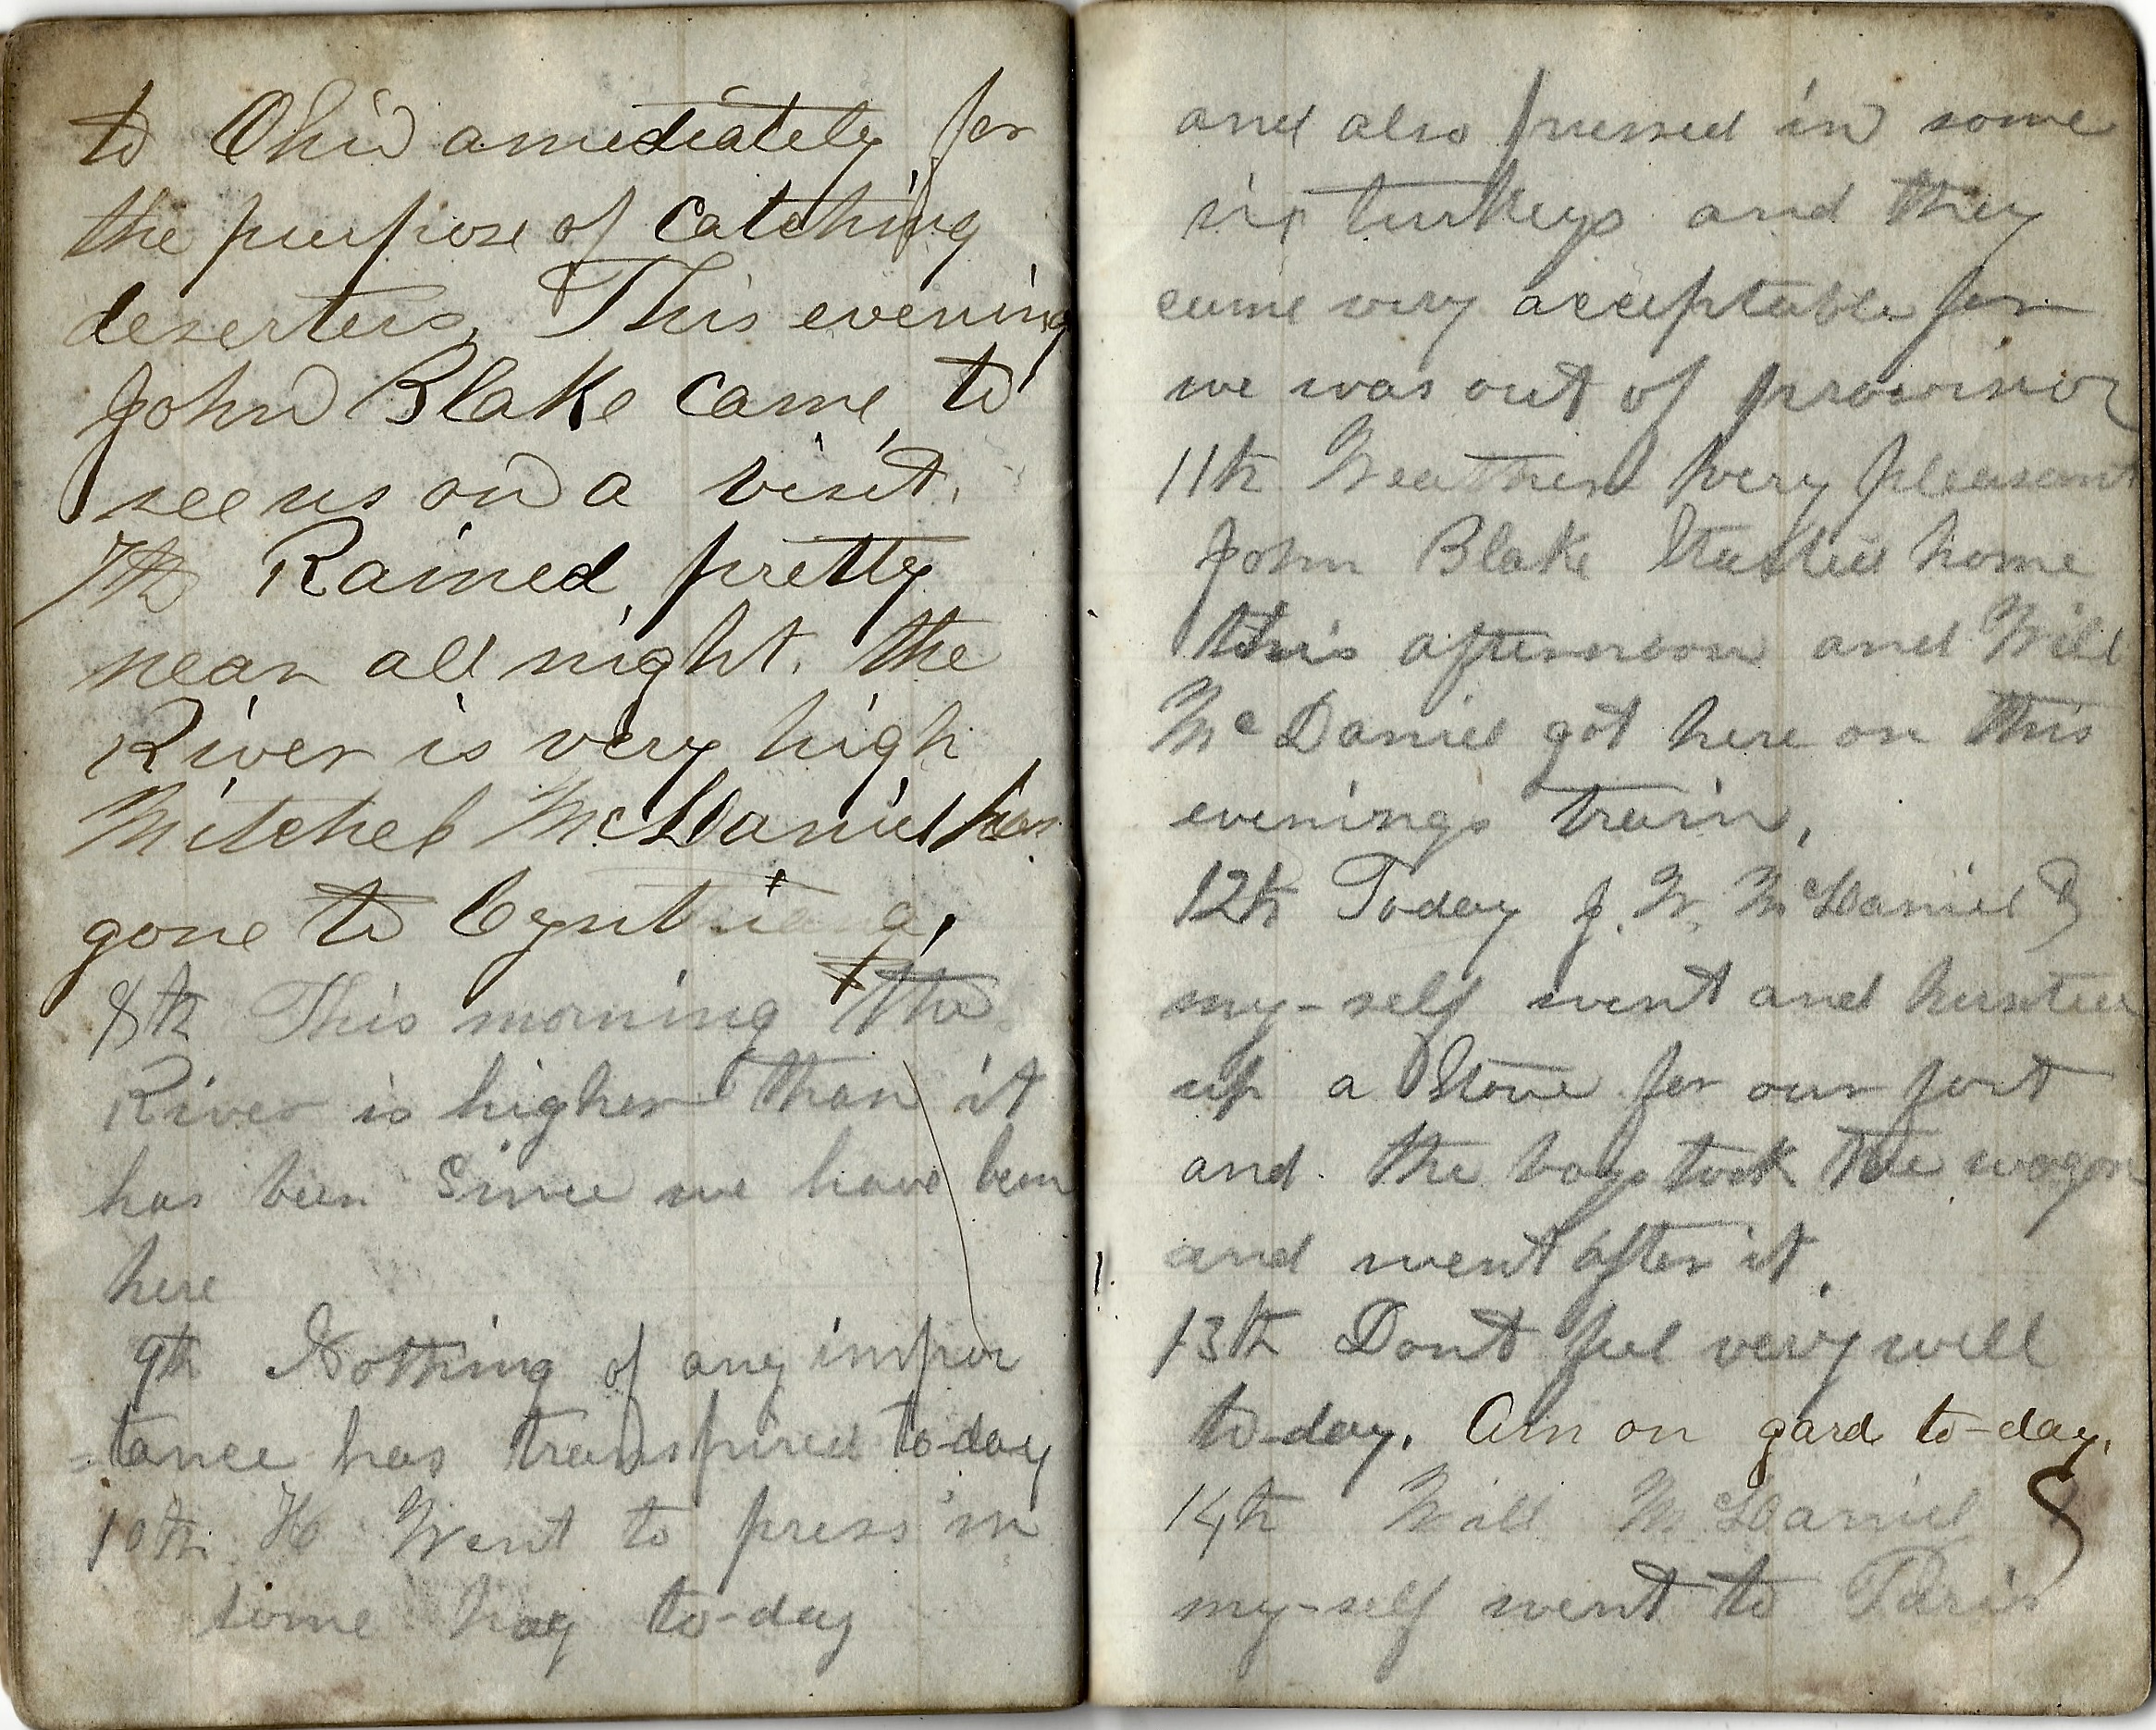 to Ohio amediately for
the purpose of catching
deserters. This evening
John Blake came to
see us on a visit.
7th Rained pretty
near all night. the
River is very high
Mitchel McDaniel has
gone to Cynthiana.
8th This morning the
River is higher than it
has been Since we have been
here
9th Nothing of any impor
=tance has transpired to-day
10th Went to press in
some hay to-day
and also pressed in some
six turkeys and they
came very acceptable for
we was out of provision
11th Weather very pleasant
John Blake Started home
this afternoon and Will
McDaniel got here on this
evenings train.
12th Today J. W. McDaniel &
my-self went and hunted
up a Stove for our fort
and the boys took the wagon
and went after it.
13th Dont feel very well
to-day. Am on gard to-day.
14th Will McDaniel &
my-self went to Paris